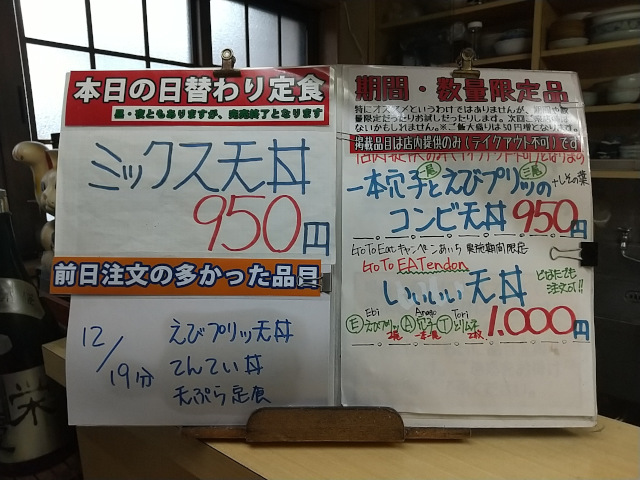 本日の日替わり定食
品・玄ともありますが、完売終了となります
ミックス天丼
950円
前日注文の多かった品目
12/19分
えびプリッ天丼
てんてい丼
天ぷら定食
期間・数量限定品
特にオススメというわけではありませんが、期間や数
量限定だったりお試しだったりします。次回ご来店時は
ないかもしれません。※ご飯大盛りは50円増となります。
掲載品目は店内提供のみ(テイクアウト不可)です
一尾 三尾
一本穴子とえびプリッの +しその葉
コンビ天丼 950円
GoToEatキャンペーンあいち 実施期間限定
GoTo EATendon
いいいい天丼 どなたでも注文可!!
Ebi Anago Tori
Ⓔえびプリッ Ⓐ穴子 Ⓣとりムネ 1.000円
2尾 一本 2枚
栄